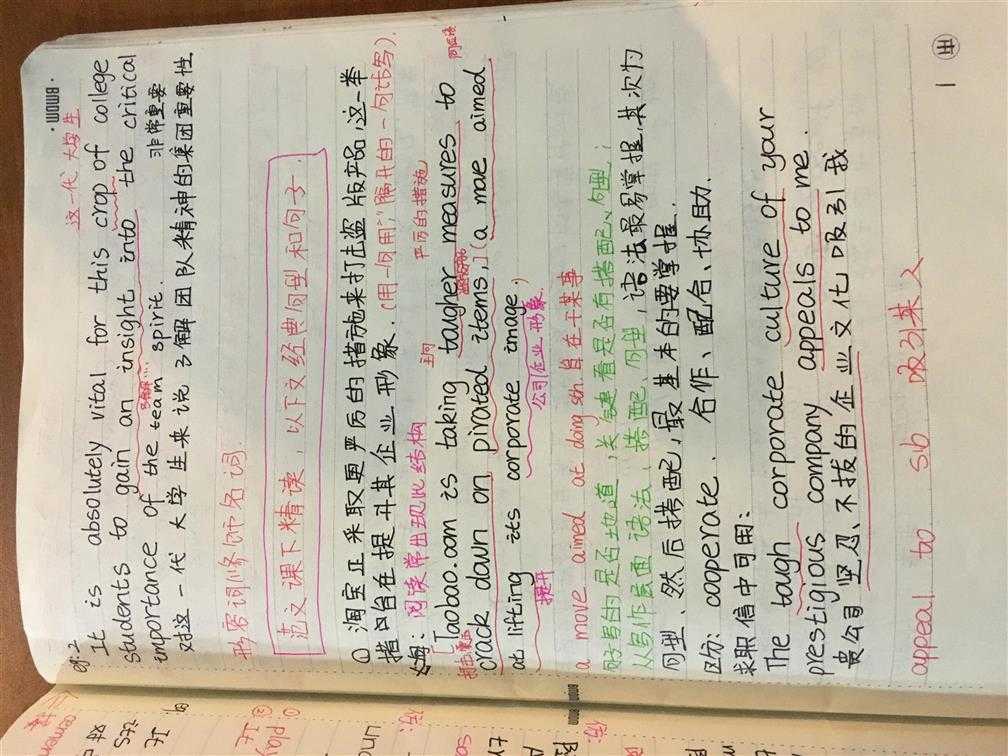 BMDM
这一代 大学生
eg.2
It is absolutely vital for this crop of college
students to gain an insight into the critical
了解...
非常重要
importance of the team spirit.
对这一代大学生来说了解团队精神的集团重要性
形容词修饰名词.
范文课下精读, 以下文经典句型和句子.
① 淘宝正采取更严厉的措施来打击盗版产品,这一举
措旨在提升其企业形象. (用一句用","隔开的一句话写).
阅读常出现此结构
主句
严厉的措施
同位语
Taobao.com is taking tougher measures to
打击
crack down on pirated items, (a move aimed
at lifting its corporate image.)
提升
公司/企业 形象.
a move aimed at doing sth. 旨在干某事
从写作层面 语法、搭配、句型, 语法最易掌握,其次为
句型、然后搭配,最基本的要掌握.
区分: cooperate. 合作、配合、协助.
求职信中可用:
The tough corporate culture of your
prestigious company appeals to me.
贵公司坚忍、不拔的企业文化吸引我
appeal to sb 吸引某人